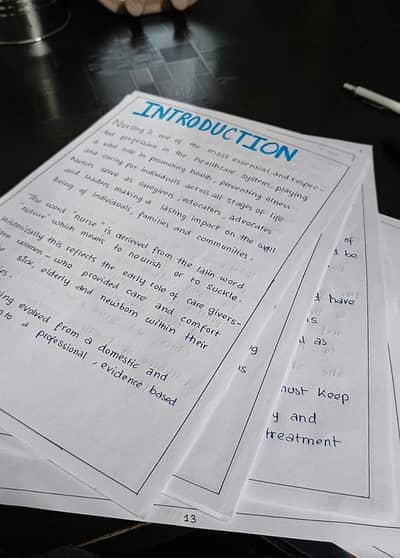 INTRODUCTION
Nursing is one of the most essential and respec-
ted profession in the healthcare system, playing
a vital role in promoting health, preventing illness
and caring for individuals across all stages of life.
Nurses serve as caregivers, educators, advocates
and leaders making a lasting impact on the well
being of individuals, families and communities.
The word "nurse" is derieved from the latin word
"nutrire" which means to nourish or to suckle.
Historically this reflects the early role of care givers-
women - who provided care and comfort
sick, elderly and newborn within their
evolved from a domestic and
to a professional, evidence based
of
be
have
is
as
must keep
y and
treatment
13